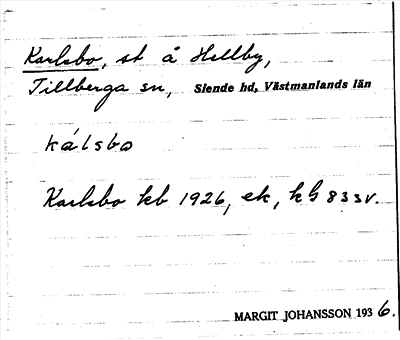 Karlsbo, st å Hellby,
Tillberga sn, Siende hd, Västmanlands län
kálsbo
Karlsbo kb 1926, ek, hG 833v.
MARGIT JOHANSSON 1936.